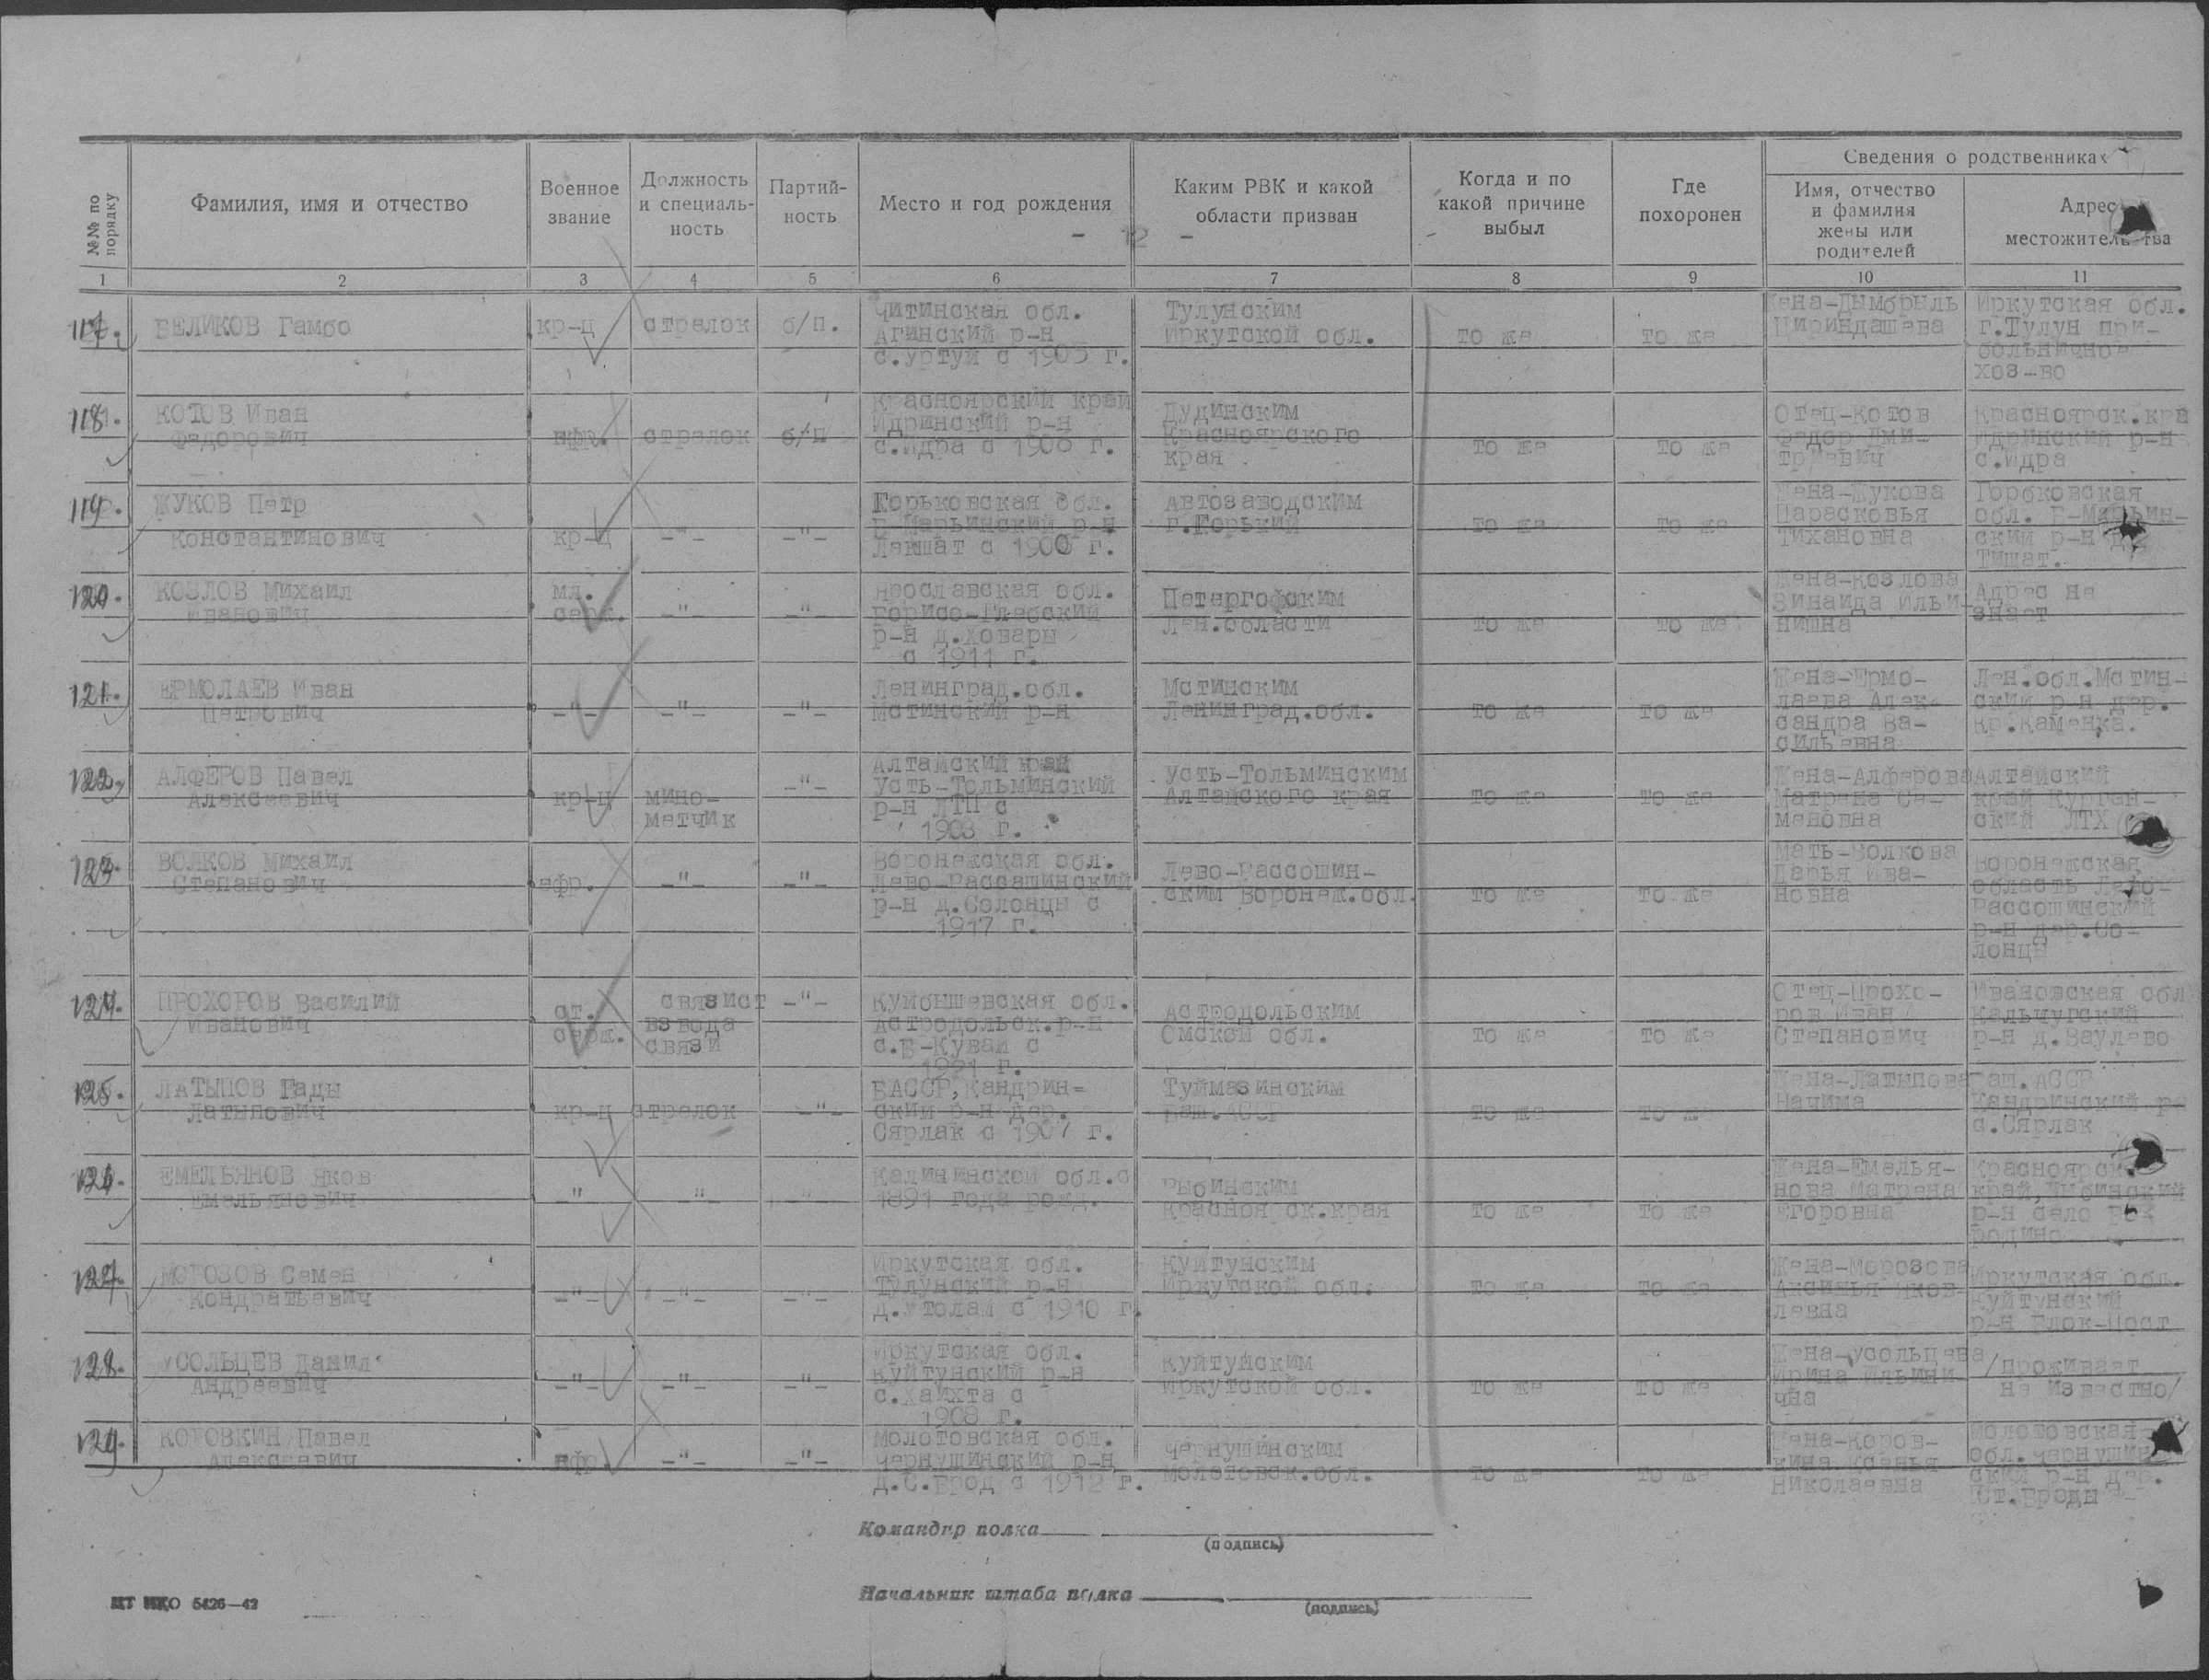 №№ по порядку
Фамилия, имя и отчество
Военное звание
Должность и специаль-ность
Партий-ность
Место и год рождения
Каким РВК и какой области призван
Когда и по какой причине выбыл
Где похоронен
Сведения о родственниках
Имя, отчество и фамилия жены или родителей
Адрес местожительства
- 12 -
1 2 3 4 5 6 7 8 9 10 11
117. БЕЛИКОВ Гамбо
кр-ц
стрелок
б/п.
Читинская обл.
Агинский р-н
с.Уртуй с 1905 г.
Тулунским
Иркутской обл.
то же
то же
Жена-Дымбрыль
Цириндашева
Иркутская обл.
г.Тулун при-
больничное
хоз-во
118. КОТОВ Иван
Федорович
ефр.
стрелок
б/п
Красноярский край
Идринский р-н
с.Идра с 1906 г.
Дудинским
Красноярского
края
то же
то же
Отец-Котов
Федор Дми-
триевич
Красноярск.кра
Идринский р-н
с.Идра
119. ЖУКОВ Петр
Константинович
кр-ц
-"-
-"-
Горьковская обл.
Б-Марьинский р-н
Лекшат с 1900 г.
Автозаводским
г.Горький
то же
то же
Жена-Жукова
Парасковья
Тихановна
Горбковская
обл. Б-Марьин-
ский р-н
Тишат.
120. КОЗЛОВ Михаил
Иванович
мл.
серж.
-"-
-"-
Ярославская обл.
Борисо-Глебский
р-н д.Ховары
с 1911 г.
Петергофским
Лен.области
то же
то же
Жена-Козлова
Зинаида Ильи-
нишна
Адрес не
знает
121. ЕРМОЛАЕВ Иван
Петрович
-"-
-"-
-"-
Ленинград.обл.
Мстинский р-н
Мстинским
Ленинград.обл.
то же
то же
Жена-Ермо-
лаева Алек-
сандра Ва-
сильевна
Лен.обл.Мстин-
ский р-н дер.
Кр.Каменка.
122. АЛФЕРОВ Павел
Алексеевич
кр-ц
мино-
метчик
-"-
Алтайский край
Усть-Тольминский
р-н ЛТП с
1903 г.
Усть-Тольминским
Алтайского края
то же
то же
Жена-Алферова
Матрена Се-
меновна
Алтайский
край Курген-
ский ЛТХ
123. ВОЛКОВ Михаил
Степанович
ефр.
-"-
-"-
Воронежская обл.
Лево-Рассашинский
р-н д.Солонцы с
1917 г.
Лево-Рассошин-
ским Воронеж.обл.
то же
то же
Мать-Волкова
Дарья Ива-
новна
Воронежская
область Лево-
Рассошинский
р-н дер.Со-
лонцы
124. ПРОХОРОВ Василий
Иванович
ст.
серж.
связист
взвода
связи
-"-
Куйбышевская обл.
Астродольск.р-н
с.Б-Кувай с
1921 г.
Астродольским
Омской обл.
то же
то же
Отец-Прохо-
ров Иван
Степанович
Ивановская обл
Кальчугский
р-н д.Ваулево
125. ЛАТЫПОВ Гады
Латыпович
кр-ц
стрелок
-"-
БАССР,Кандрин-
ский р-н дер.
Сярлак с 1907 г.
Туймазинским
Баш.АССР
то же
то же
Жена-Латыпова
Начима
Баш.АССР
Кандринский р-
с.Сярлак
126. ЕМЕЛЬЯНОВ Яков
Емельянович
-"
-"-
-"-
Калининской обл.с
1891 года рожд.
Рыбинским
Краснояpск.края
то же
то же
Жена-Емелья-
нова Матрена
Егоровна
Красноярск.
край,Рыбинский
р-н село
127. МОРОЗОВ Семен
Кондратьевич
-"-
-"-
-"-
Иркутская обл.
Тулунский р-н
д.Утолай с 1910 г.
Куйтунским
Иркутской обл.
то же
то же
Жена-Морозова
Аксинья Яков-
левна
Иркутская обл.
Куйтунский
р-н Блок-Пост
128. УСОЛЬЦЕВ Данил
Андреевич
-"-
-"-
-"-
Иркутская обл.
Куйтунский р-н
с.Хаихта с
1908 г.
Куйтунским
Иркутской обл.
то же
то же
Жена-Усольцева
Ирина Ильини-
чна
/проживает
не известно/
129. КОРОВКИН Павел
Алексеевич
ефр.
-"-
-"-
Молотовская обл.
Чернушинский р-н
д.С.Брод с 1912 г.
Чернушинским
Молотовск.обл.
то же
то же
Жена-Коров-
кина Ксенья
Николаевна
Молотовская
обл.Чернушин
ский р-н дер.
Ст.Броды
Командир полка
(подпись)
Начальник штаба полка
(подпись)
МТ НКО 5426—42